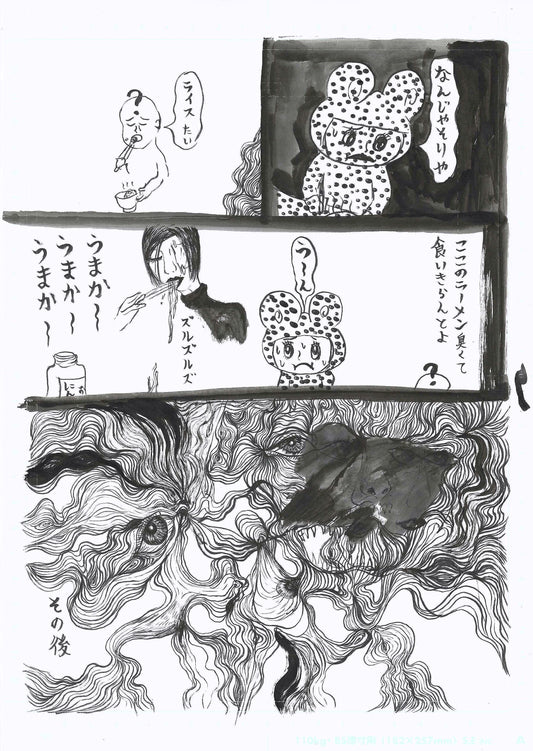 なんじゃそりゃ
ライスたい
ここのラーメン臭くて
食いきらんとよ
?
う〜ん
ズルズルズ
うまか〜
うまか〜
うまか〜
お
にん
その後